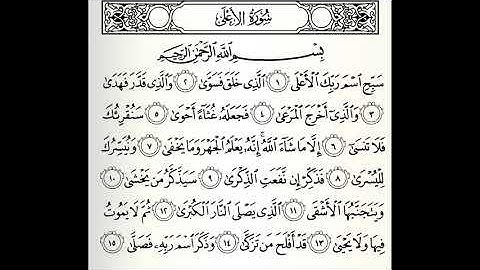 سُورَةُ الأَعْلَى
بِسْمِ اللَّهِ الرَّحْمَٰنِ الرَّحِيمِ
سَبِّحِ اسْمَ رَبِّكَ الْأَعْلَى ١ الَّذِي خَلَقَ فَسَوَّىٰ ٢ وَالَّذِي قَدَّرَ فَهَدَىٰ
٣ وَالَّذِي أَخْرَجَ الْمَرْعَىٰ ٤ فَجَعَلَهُ غُثَاءً أَحْوَىٰ ٥ سَنُقْرِئُكَ
فَلَا تَنسَىٰ ٦ إِلَّا مَا شَاءَ اللَّهُ ۚ إِنَّهُ يَعْلَمُ الْجَهْرَ وَمَا يَخْفَىٰ ٧ وَنُيَسِّرُكَ
لِلْيُسْرَىٰ ٨ فَذَكِّرْ إِن نَّفَعَتِ الذِّكْرَىٰ ٩ سَيَذَّكَّرُ مَن يَخْشَىٰ ١٠
وَيَتَجَنَّبُهَا الْأَشْقَى ١١ الَّذِي يَصْلَى النَّارَ الْكُبْرَىٰ ١٢ ثُمَّ لَا يَمُوتُ
فِيهَا وَلَا يَحْيَىٰ ١٣ قَدْ أَفْلَحَ مَن تَزَكَّىٰ ١٤ وَذَكَرَ اسْمَ رَبِّهِ فَصَلَّىٰ ١٥